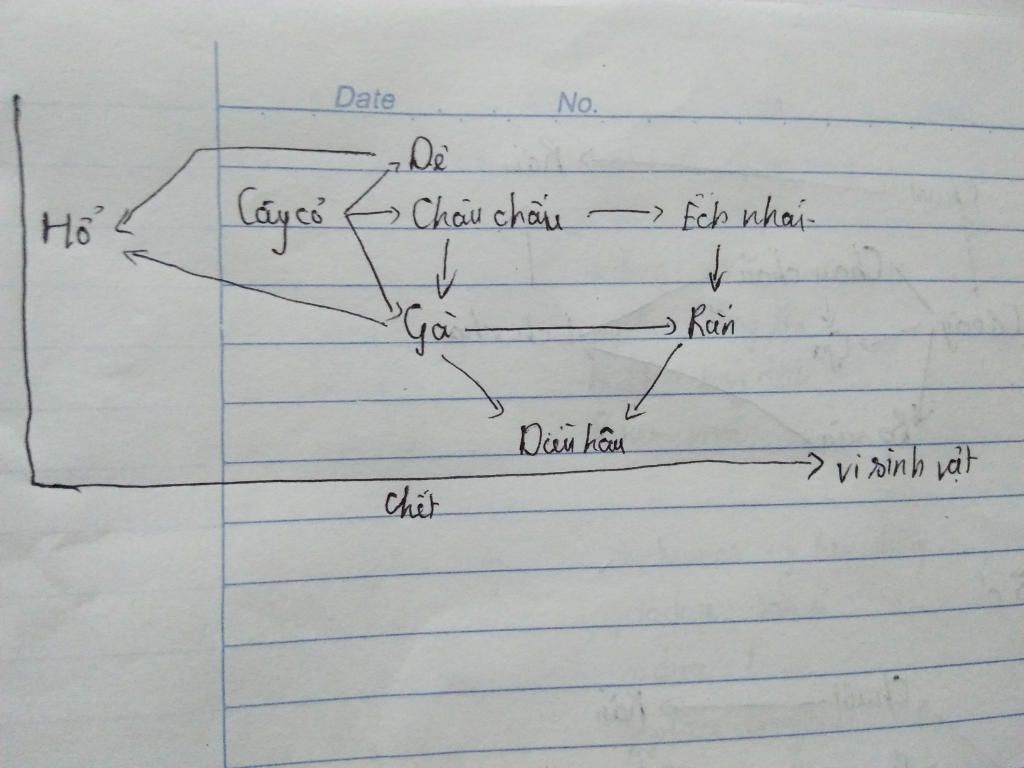 Date No.
Dê
Hổ Cây cỏ Châu chấu Ếch nhái
Gà Rắn
Diều hâu
vi sinh vật
Chết